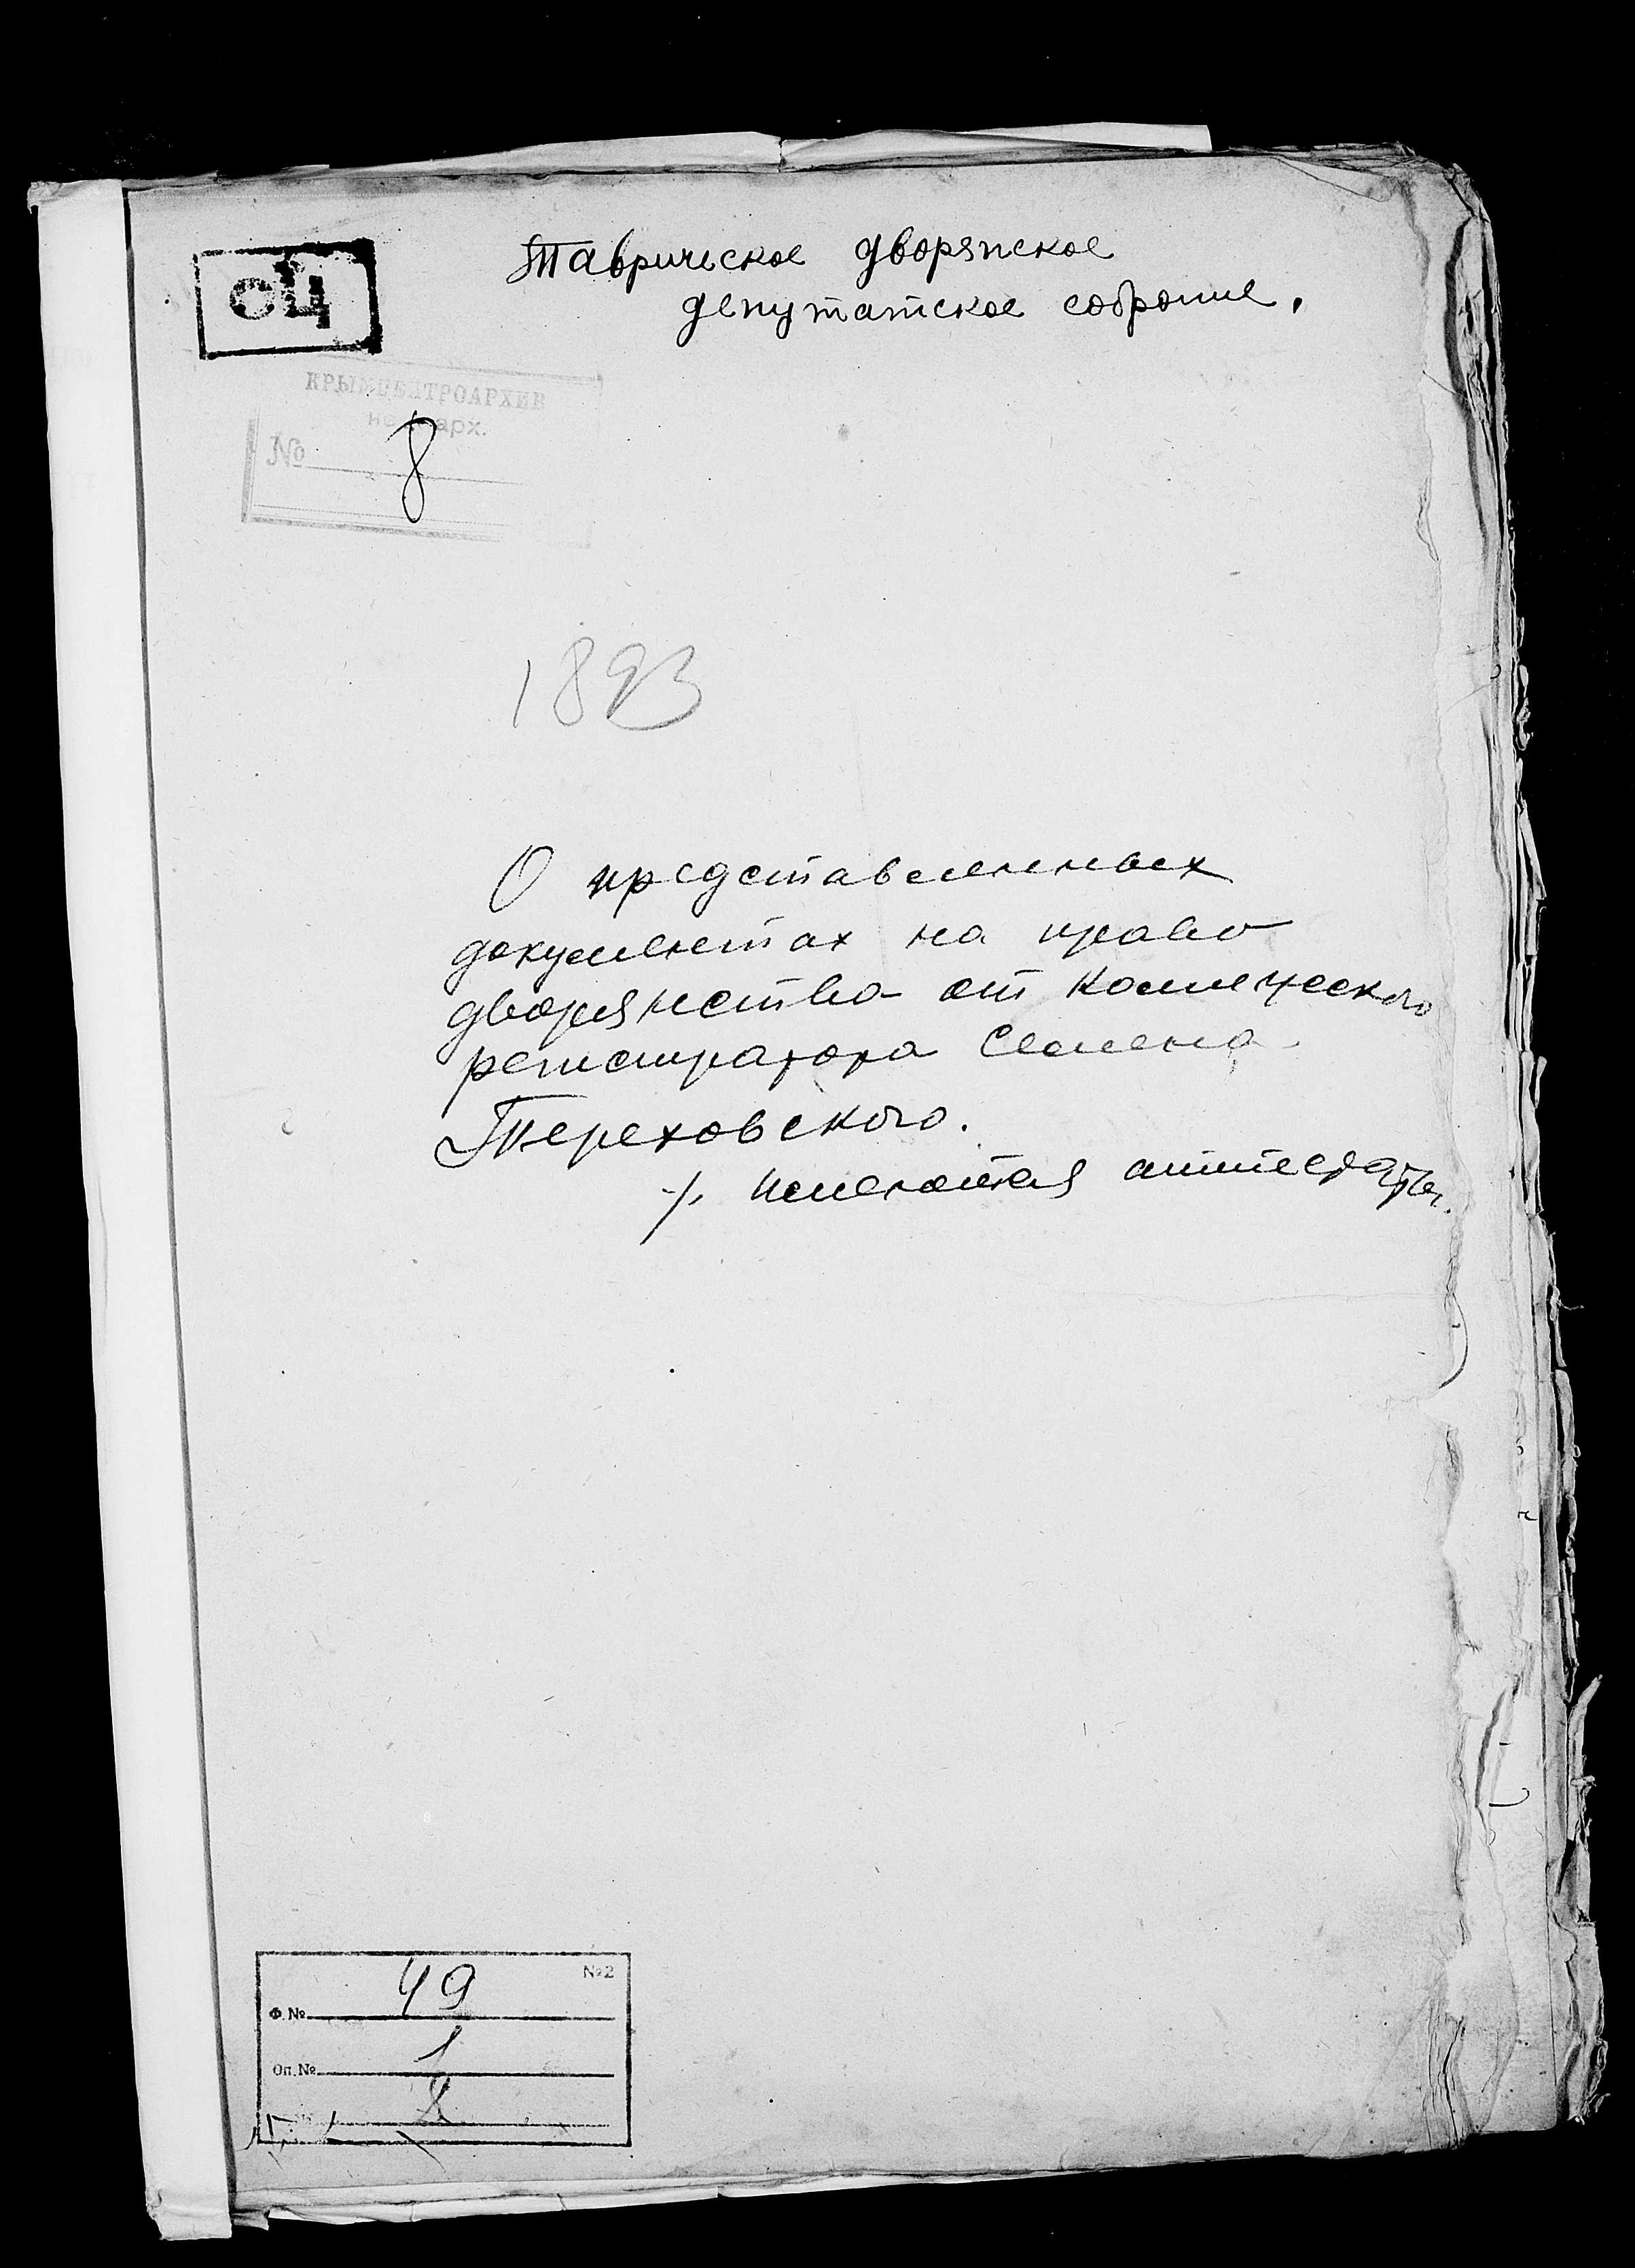 Таврическое дворянское
депутатское собрание.
ОЦ
КРЫМЦЕНТРОАРХИВ
арх.
№ 8
1893
О представленных
документах на право
дворянства от коллежского
регистратора Семена
Тереховского.
-/. Имеются аттестаты.
№2
Ф. № 49
Оп. № 1
8